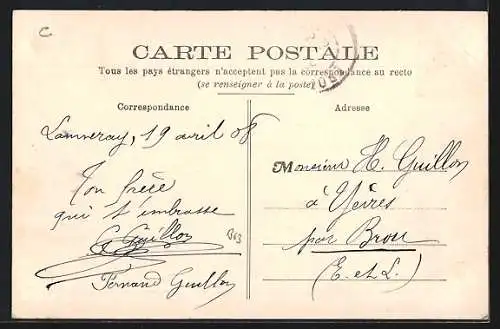 C
CARTE POSTALE
Tous les pays étrangers n'acceptent pas la correspondance au recto
(se renseigner à la poste)
Correspondance
Adresse
19 avril 08
Ton frère
qui t'embrasse
G Guillon
Fernand Guillon
Monsieur H. Guillon
à Yèvres
par Brou
(E. et L.)